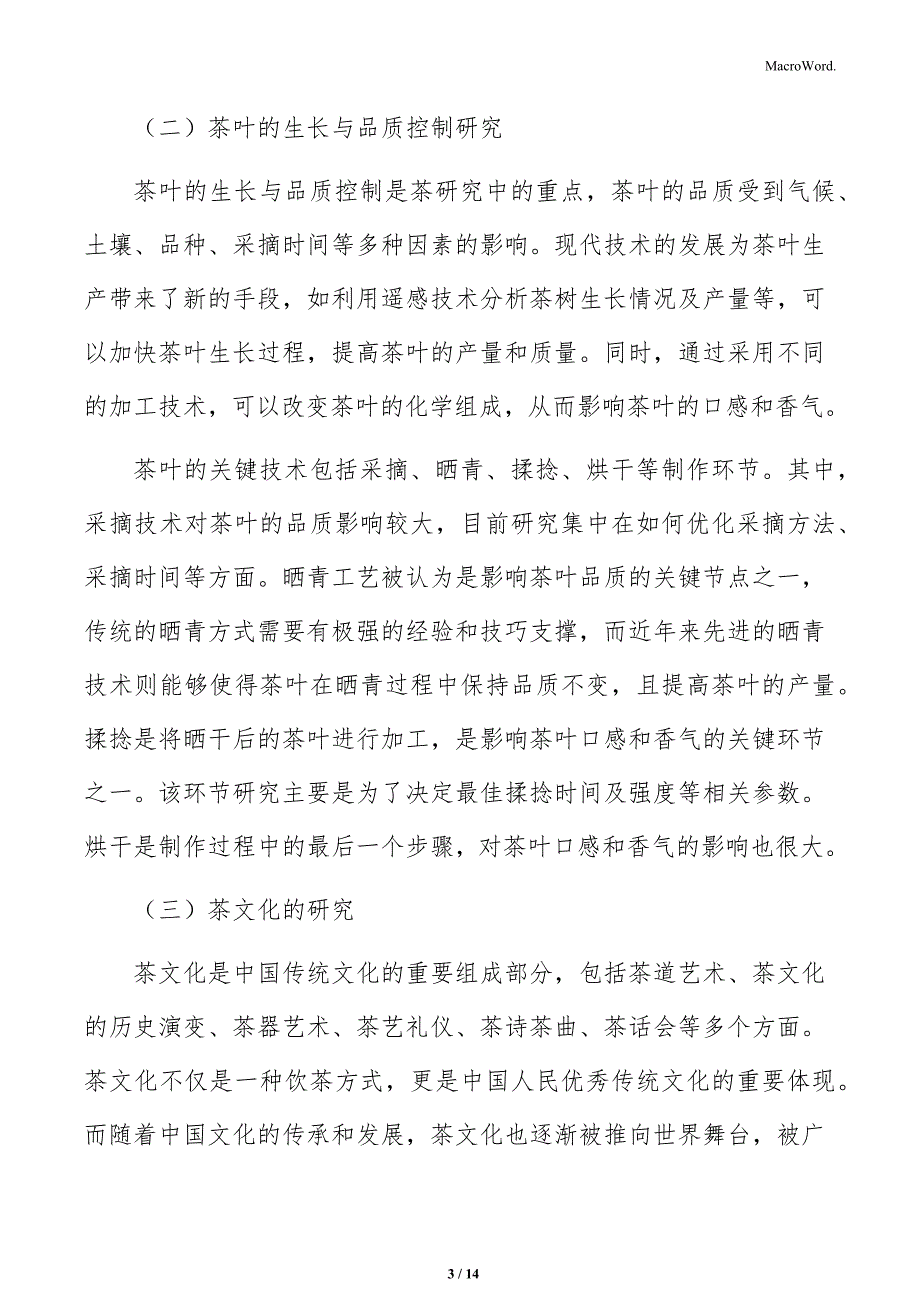 MacroWord.
（二）茶叶的生长与品质控制研究
茶叶的生长与品质控制是茶研究中的重点，茶叶的品质受到气候、
土壤、品种、采摘时间等多种因素的影响。现代技术的发展为茶叶生
产带来了新的手段，如利用遥感技术分析茶树生长情况及产量等，可
以加快茶叶生长过程，提高茶叶的产量和质量。同时，通过采用不同
的加工技术，可以改变茶叶的化学组成，从而影响茶叶的口感和香气。
茶叶的关键技术包括采摘、晒青、揉捻、烘干等制作环节。其中，
采摘技术对茶叶的品质影响较大，目前研究集中在如何优化采摘方法、
采摘时间等方面。晒青工艺被认为是影响茶叶品质的关键节点之一，
传统的晒青方式需要有极强的经验和技巧支撑，而近年来先进的晒青
技术则能够使得茶叶在晒青过程中保持品质不变，且提高茶叶的产量。
揉捻是将晒干后的茶叶进行加工，是影响茶叶口感和香气的关键环节
之一。该环节研究主要是为了决定最佳揉捻时间及强度等相关参数。
烘干是制作过程中的最后一个步骤，对茶叶口感和香气的影响也很大。
（三）茶文化的研究
茶文化是中国传统文化的重要组成部分，包括茶道艺术、茶文化
的历史演变、茶器艺术、茶艺礼仪、茶诗茶曲、茶话会等多个方面。
茶文化不仅是一种饮茶方式，更是中国人民优秀传统文化的重要体现。
而随着中国文化的传承和发展，茶文化也逐渐被推向世界舞台，被广
3 / 14